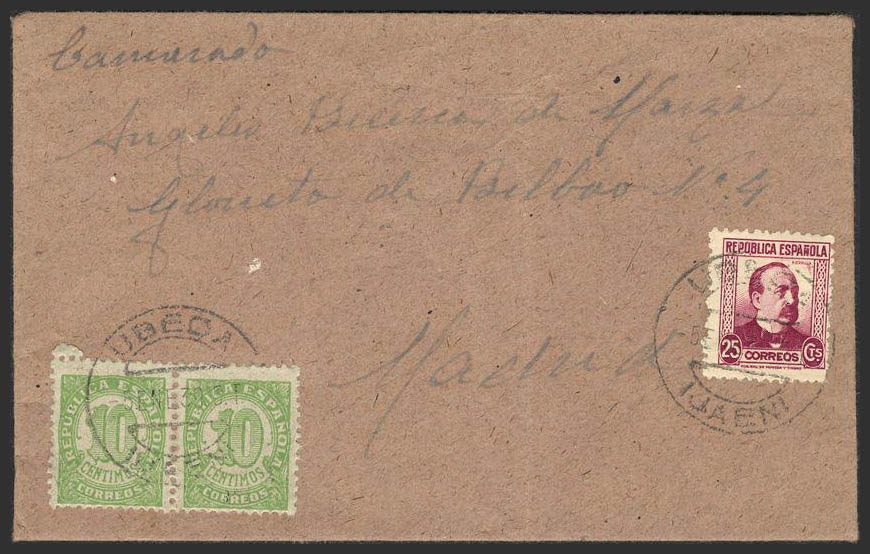 Camarada
Angeles de Maza
Glorieta de Bilbao Nº 4
Madrid
REPÚBLICA ESPAÑOLA
25 CORREOS Cts
UBEDA
(JAEN)
UBEDA
REPUBLICA ESPAÑOLA
10
CENTIMOS
CORREOS
REPUBLICA ESPAÑOLA
10
CENTIMOS
CORREOS